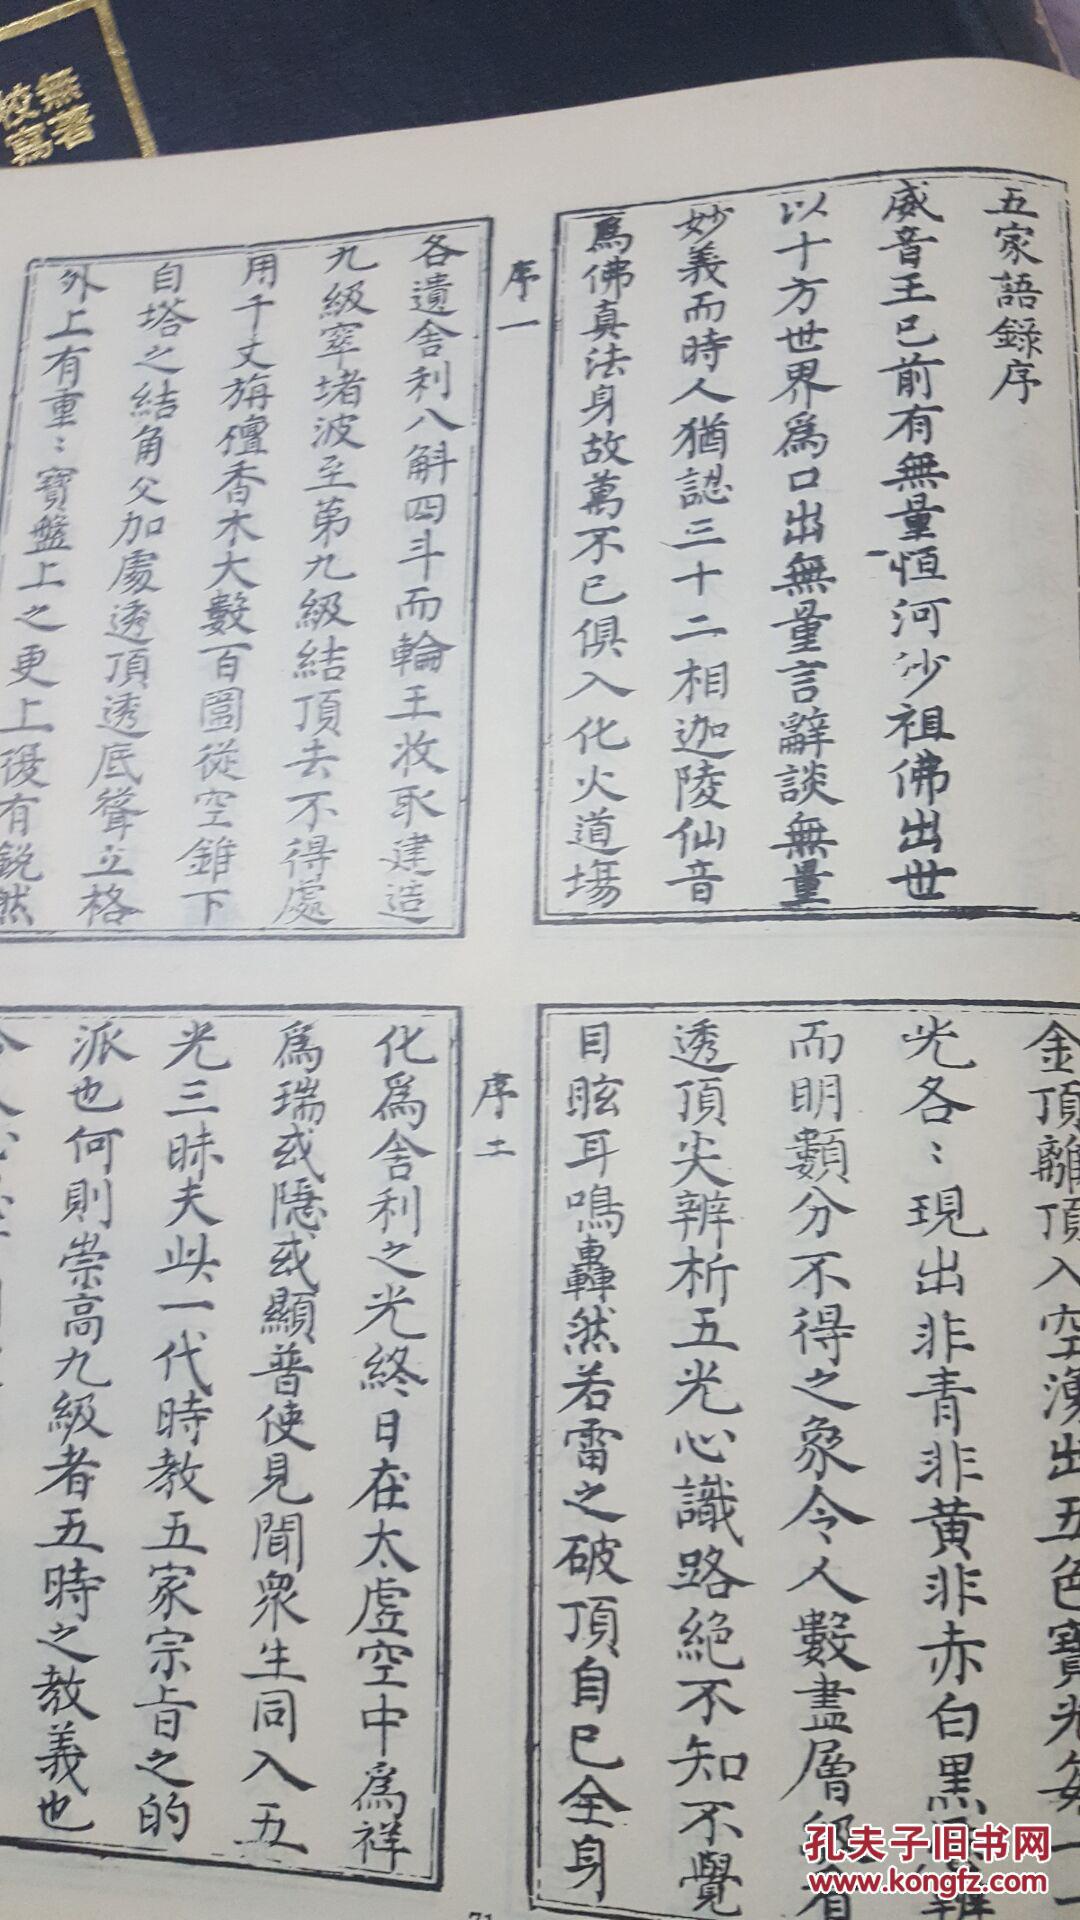 無著
校寫
五家語錄序
威音王已前有無量恒河沙祖佛出世
以十方世界爲口出無量言辭談無量
妙義而時人猶認三十二相迦陵仙音
爲佛真法身故萬不已俱入化火道場
序一
各遺舍利八斛四斗而輪王收取建造
九級窣堵波至第九級結頂去不得處
用千丈旃檀香木大數百圍從空錐下
自塔之結角父加處透頂透底聳立格
外上有重〻寶盤上之更上復有銳然
金頂離頂入空湧出五色寶光
光各〻現出非青非黃非赤白黑
而明顯分不得之象令人數盡層
透頂尖辨析五光心識路絕不知不覺
目眩耳鳴轟然若雷之破頂自已全身
序二
化爲舍利之光終日在太虛空中爲祥
爲瑞或隱或顯普使見聞衆生同入五
光三昧夫此一代時教五家宗旨之的
派也何則崇高九級者五時之教義也
71
孔夫子旧书网
www.kongfz.com